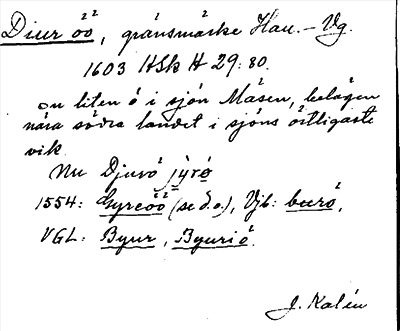 Diur öö, gränsmärke Hall.–Vg.
1603 HSk H 29:80.
en liten ö i sjön Mäsen, belägen
nära södra landet i sjöns östligaste
vik.
Nu Djurö jȳrö
1554: Gyreöö (se d.o.), Vjb: burö,
VGL: Byur, Byuriö.
J. Kalén